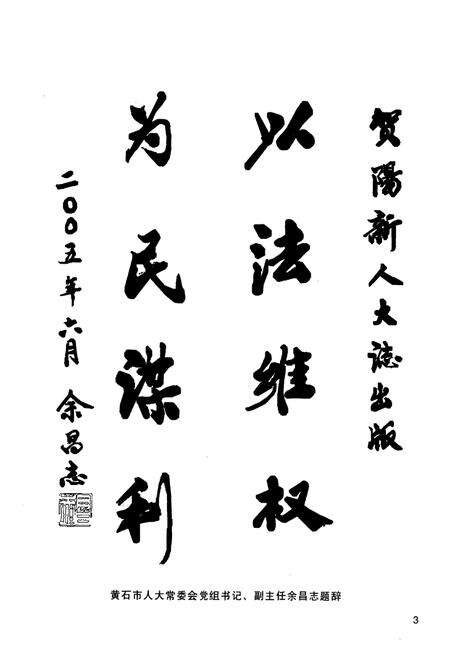 贺陽新人大誌出版
以法维权
为民谋利
二〇〇五年六月 余昌志
黄石市人大常委会党组书记、副主任余昌志题辞
3